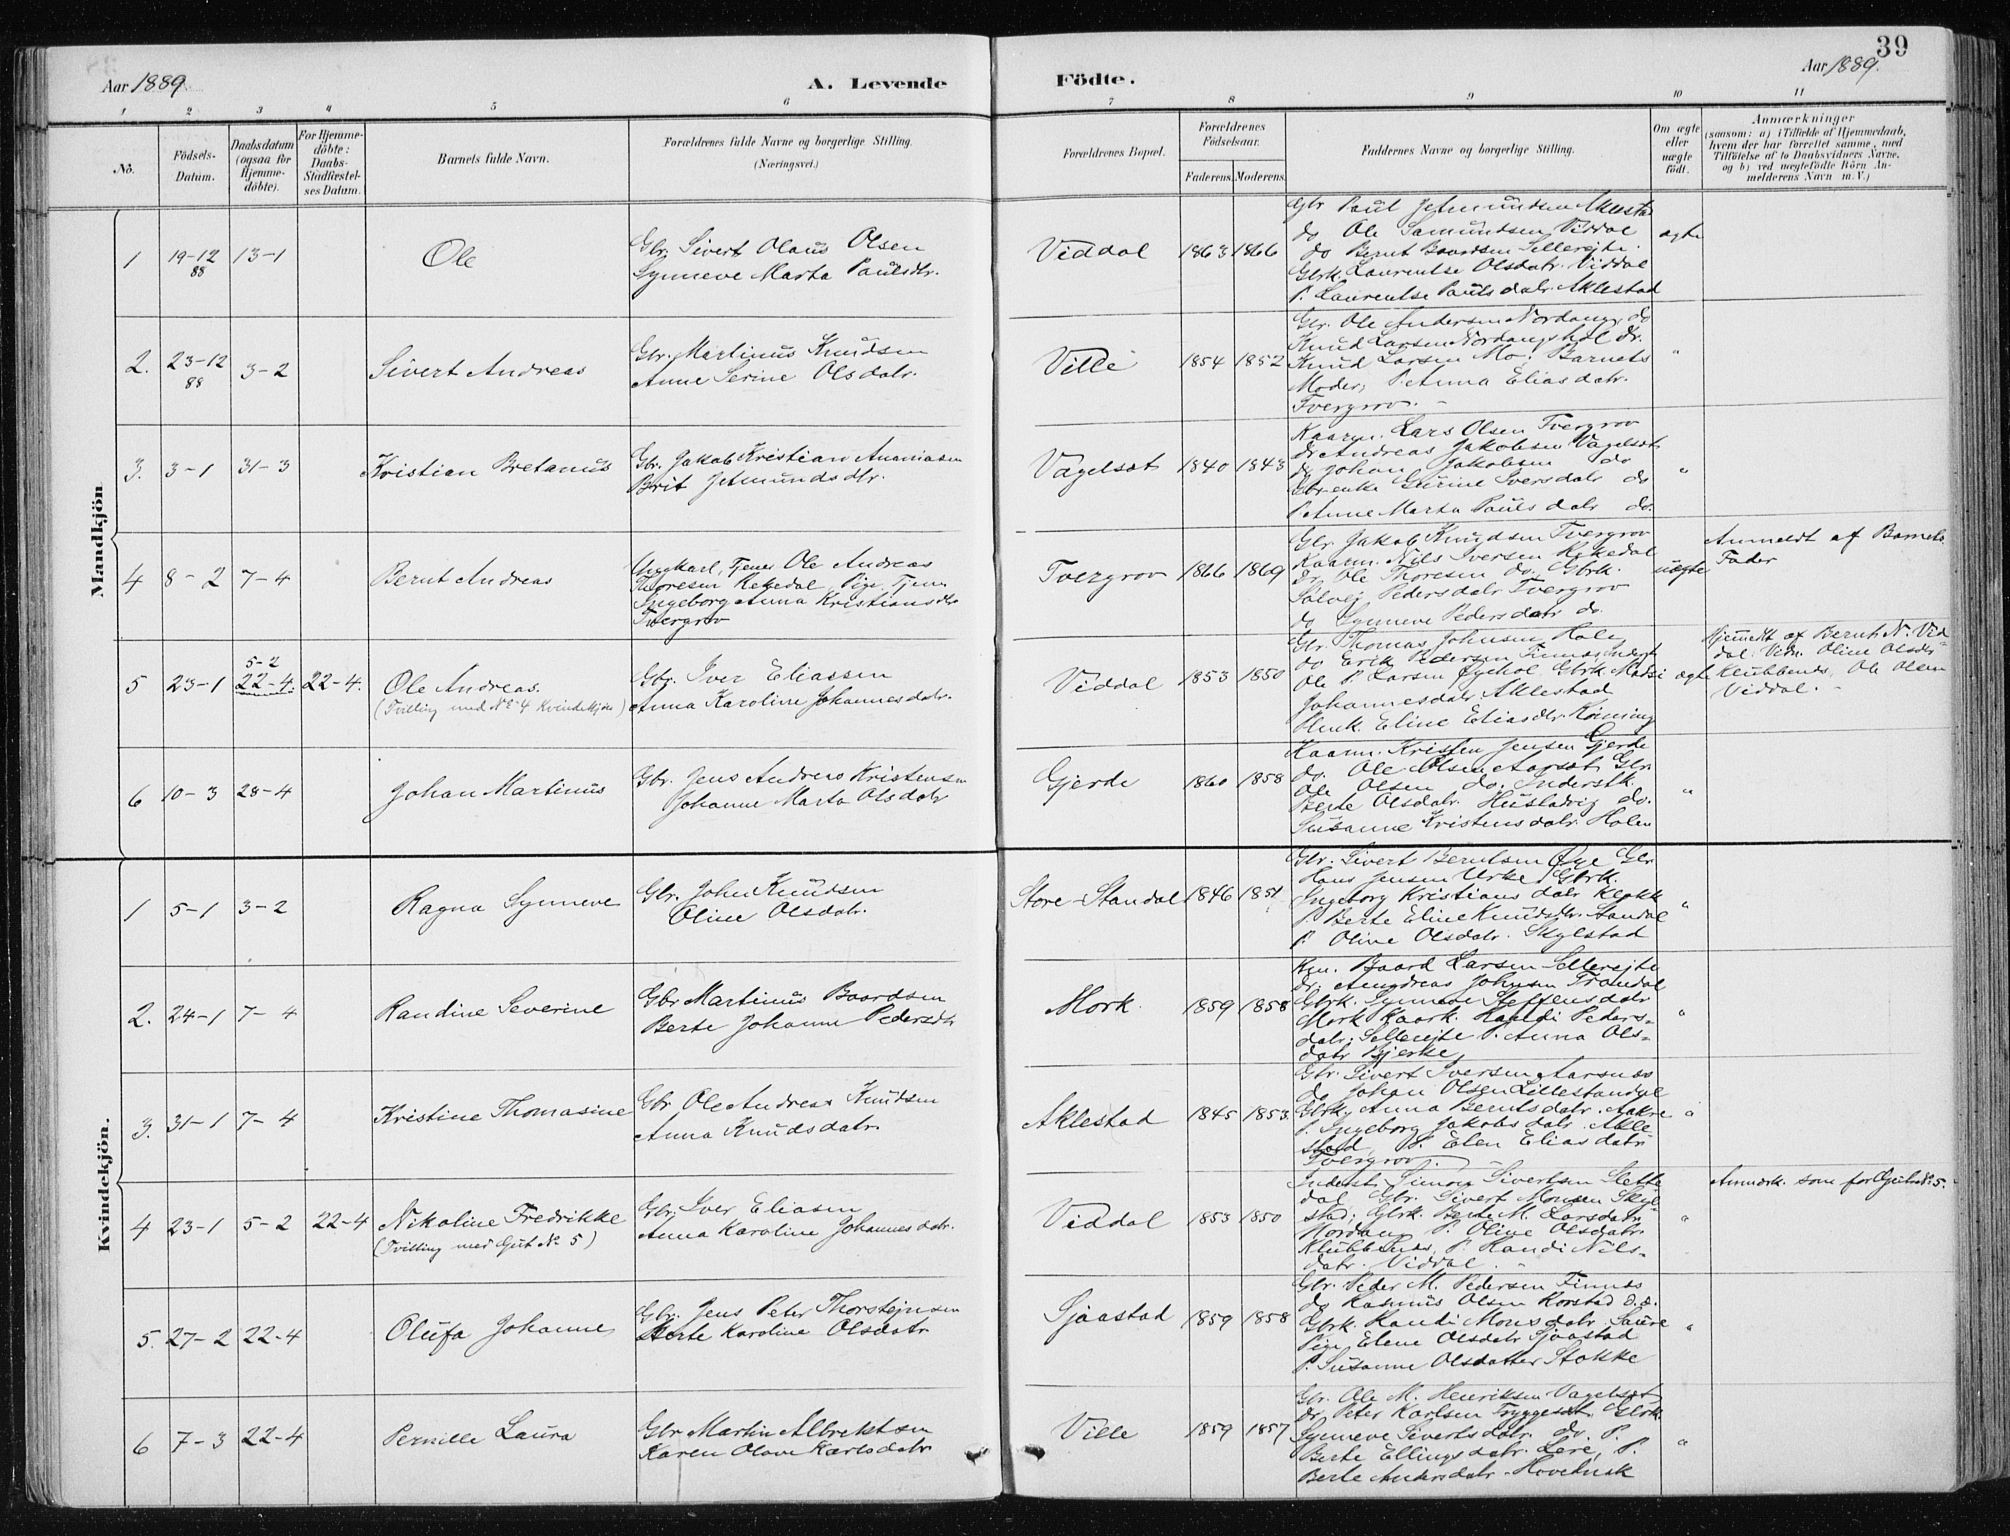 39
Aar 1889
A. Levende Födte.
Aar 1889.
1 2 3 4 5 6 7 8 9 10 11
No.
Födsels-Datum.
Daabsdatum (ogsaa for Hjemme-döbte).
For Hjemme-döbte: Daabs-Stadfæstel-ses Datum.
Barnets fulde Navn.
Forældrenes fulde Navne og borgerlige Stilling. (Næringsvei.)
Forældrenes Bopæl.
Forældrenes Födselsaar.
Faderens. Moderens.
Faddernes Navne og borgerlige Stilling.
Om ægte eller uægte födt.
Anmærkninger
(saasom: a) i Tilfælde af Hjemmedaab, hvem der har forrettet samme, med Tilföielse af to Daabsvidners Navne, og b) ved uægtefödte Börn An-melderens Navn m. V.)
Mandkjön
1 19-12 88 13-1 Ole
Gbr. Sivert Olaus Olsen
Synneve Marta Paulsdtr.
Viddal 1863 1866
Gbr Paul Jetmundsen Aklestad
do Ole Samundsen Viddal
do Bernt Baardsen Sellerejte.
Gbrk. Laurentse Olsdatr. Viddal
P. Laurentse Paulsdatr. Aklestad
ægte
2. 23-12 88 3-2 Sivert Andreas
Gbr. Martinus Knudsen
Anne Serine Olsdatr.
Ville 1854 1852
Gbr. Ole Andersen Nordang, do
Knud Larsen Nordangshol do.
Knud Larsen Mo. Barnets
Moder, P. Anna Eliasdatr.
Tvergrov.
"
3. 3-1 31-3 Kristian Bretanus
Gbr. Jakob Kristian Ananiasen
Brit Jetmundsdtr.
Vagelsæt 1840 1843
Kaarm. Lars Olsen Tvergrov
do Andreas Jakobsen Vagelsæt
do Johan Jakobsen do
Gbrenke Gurine Iversdatr do
P. Anne Marta Paulsdatr do.
"
4 8-2 7-4 Bernt Andreas
Ungkarl, Tjener Ole Andreas
Thoresen Rekkedal, Pige Tjen.
Ingeborg Anna Kristiansdtr
Tvergrov
Tvergrov 1866 1869
Gbr. Jakob Knudsen Tvergrov
Kaarm. Nils Iversen Rekedal
do Ole Thoresen do. Gbrk.
Solvej Pedersdatr Tvergrov
do Synneve Pedersdatr do.
uægte
Anmeldt af Barnets
Fader
5 23-1 5-2 22-4. 22-4. Ole Andreas.
(Tvilling med No 4 Kvindekjön)
Gbr. Iver Eliassen
Anna Karoline Johannesdatr.
Viddal 1853 1850
Gbr. Thomas Johnsen Hole
do Erik Pedersen Finnes, Inderst
Ole P. Larsen Øyehol. Gbrk. Madsi
Johannesdatr Aklestad
Eline Eliasdtr.
ægt
Hjemmdt af Bernt N. Vid
dal. Vidn. Oline Olsdtr
Klubbenes, Ole Olsen
Viddal.
6 10-3 28-4 Johan Martinus
Gbr. Jens Andreas Kristensen
Johanne Marta Olsdatr
Gjerde 1860 1858
Kaarm. Kristen Jensen Gjerde
do. Ole Olsen Aarsæt, Gbr.
Ole Olsen do. Inderstk.
Berte Olsdatr. Hustadvig do.
Susanne Kristensdatr. Holen
"
Kvindekjön.
1 5-1 3-2 Ragna Synneve
Gbr. John Knudsen
Oline Olsdatr.
Store-Standal 1846 1851
Gbr. Sivert Berntsen Øye Gbr
Hans Jensen Urke, Gbrk.
Ingeborg Kristiansdatr Klokk
P. Berte Eline Knudsdtr. Standal
P. Oline Olsdatr. Skylstad
"
2. 24-1 7-4 Randine Severine
Gbr Martinus Baardsen
Berte Johanne Pedersdtr
Mork. 1859 1858
Km. Baard Larsen Sellerejte
do. Andreas Johnsen Trandal
Gbrk. Synneve Steffensdatr
Mork Kaark. Randi Peders-
datr. Sellerejte P. Anna Ols-
datr Bjerke
"
3. 31-1 7-4 Kristine Thomasine
Gbr Ole Andreas Knudsen
Anna Knudsdatr.
Aklestad 1845 1853.
Gbr. Sivert Iversen Aarsnes
do Johan Olsen Lillestandal
Gbrk. Anna Berntsdatr. Aakre
P. Ingeborg Jakobsdatr. Akle
stad, P. Elen Eliasdatr
Tvergrov.
"
4 23-1 5-2 22-4 Nikoline Fredrikke
(Tvilling med Gut No 5)
Gbr. Iver Eliasen
Anna Karoline Johannesdatr.
Viddal 1853 1850
Inderst. Simon Sivertsen Slette
dal Gbr. Sivert Monsen Skyl-
stad, Gbrk. Berte M. Larsdatr.
Nordang, P. Oline Olsdatr.
Klubbenes, P. Randi Nils-
datr. Viddal.
"
Anmerk. som for Gut No. 5.
5. 27-2 22-4 Olufa Johanne
Gbr. Jens Peter Thorstejnsen
Berte Karoline Olsdatr
Sjaastad 1859 1858
Gbr. Peder M. Pedersen Finnes
do Rasmus Olsen Korstad d.d.
Gbrk. Randi Monsdatr. Saure
Pige Elene Olsdatr Sjaastad
P. Susanne Olsdatter Stokke
"
6 7-3 22-4 Pernille Laura
Gbr Martin Albrektsen
Karen Olave Karlsdatr
Ville 1859 1857
Gbr. Ole M. Henriksen Vagelsæt
do. Peter Karlsen Tryggesæt. Gbrk.
Synneve Sivertsdatr. do. P.
Berte Ellingsdatr. Lere, P.
Berte Andersdatr.
"